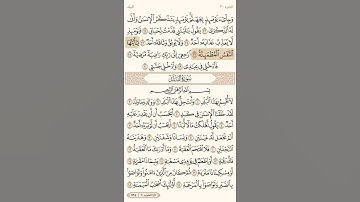 وَجِاْىٓءَ يَوْمَئِذٍۭ بِجَهَنَّمَ ۚ يَوْمَئِذٍ يَتَذَكَّرُ ٱلْإِنسَٰنُ وَأَنَّىٰ
لَهُ ٱلذِّكْرَىٰ ٢٣ يَقُولُ يَٰلَيْتَنِى قَدَّمْتُ لِحَيَاتِى ٢٤ فَيَوْمَئِذٍ
لَّا يُعَذِّبُ عَذَابَهُۥٓ أَحَدٌ ٢٥ وَلَا يُوثِقُ وَثَاقَهُۥٓ أَحَدٌ ٢٦ يَٰٓأَيَّتُهَا
ٱلنَّفْسُ ٱلْمُطْمَئِنَّةُ ٢٧ ٱرْجِعِىٓ إِلَىٰ رَبِّكِ رَاضِيَةً مَّرْضِيَّةً ٢٨
فَٱدْخُلِى فِى عِبَٰدِى ٢٩ وَٱدْخُلِى جَنَّتِى ٣٠
سُورَةُ ٱلْبَلَدِ
بِسْمِ ٱللَّهِ ٱلرَّحْمَٰنِ ٱلرَّحِيمِ
لَآ أُقْسِمُ بِهَٰذَا ٱلْبَلَدِ ١ وَأَنتَ حِلٌّۢ بِهَٰذَا ٱلْبَلَدِ ٢ وَوَالِدٍ وَمَا وَلَدَ ٣
لَقَدْ خَلَقْنَا ٱلْإِنسَٰنَ فِى كَبَدٍ ٤ أَيَحْسَبُ أَن لَّن يَقْدِرَ عَلَيْهِ
أَحَدٌ ٥ يَقُولُ أَهْلَكْتُ مَالًا لُّبَدًا ٦ أَيَحْسَبُ أَن لَّمْ يَرَهُۥٓ أَحَدٌ ٧
أَلَمْ نَجْعَل لَّهُۥ عَيْنَيْنِ ٨ وَلِسَانًا وَشَفَتَيْنِ ٩ وَهَدَيْنَٰهُ
ٱلنَّجْدَيْنِ ١٠ فَلَا ٱقْتَحَمَ ٱلْعَقَبَةَ ١١ وَمَآ أَدْرَىٰكَ مَا ٱلْعَقَبَةُ ١٢
فَكُّ رَقَبَةٍ ١٣ أَوْ إِطْعَٰمٌ فِى يَوْمٍ ذِى مَسْغَبَةٍ ١٤ يَتِيمًا ذَا مَقْرَبَةٍ ١٥
أَوْ مِسْكِينًا ذَا مَتْرَبَةٍ ١٦ ثُمَّ كَانَ مِنَ ٱلَّذِينَ ءَامَنُوا۟ وَتَوَاصَوْا۟
بِٱلصَّبْرِ وَتَوَاصَوْا۟ بِٱلْمَرْحَمَةِ ١٧ أُو۟لَٰٓئِكَ أَصْحَٰبُ ٱلْمَيْمَنَةِ ١٨